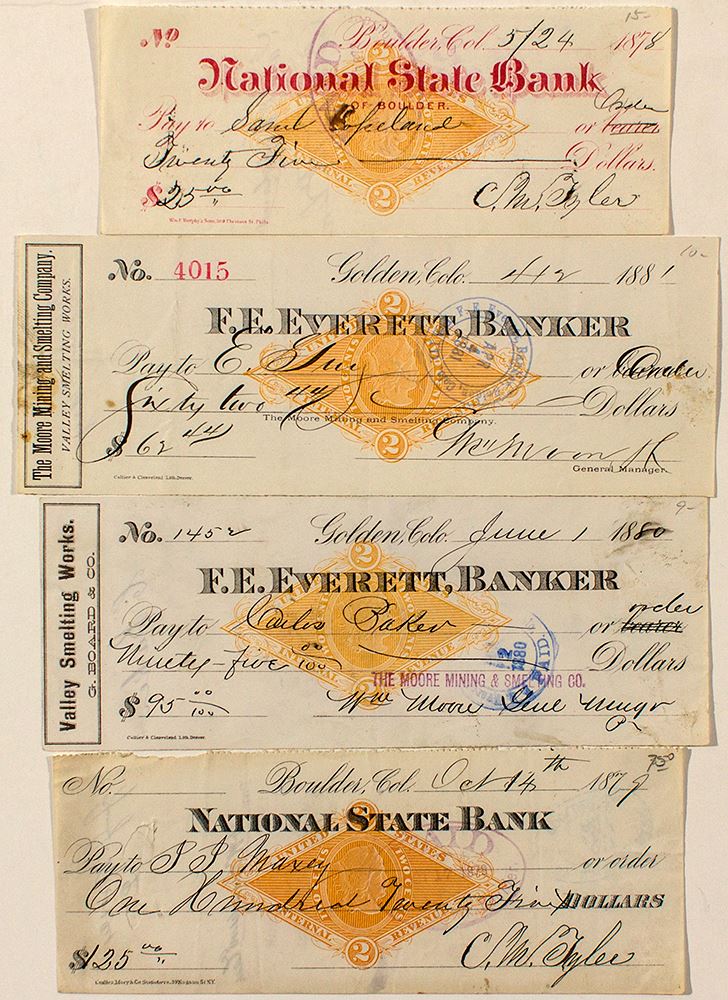 15-
No. Boulder, Col. 5/24 1878
National State Bank
OF BOULDER.
Pay to Saml Copeland or bearer Order
Twenty Five Dollars.
$25 00 C. M. Tyler
INTERNAL REVENUE
2
10-
The Moore Mining and Smelting Company.
VALLEY SMELTING WORKS.
No. 4015 Golden, Colo. 4/2 1881
F. E. EVERETT, BANKER
Pay to E. or bearer Order
Sixty two 44 Dollars
The Moore Mining and Smelting Company.
$62 44 Wm Moore
General Manager.
Collier & Cleaveland Lith. Denver.
2
9-
Valley Smelting Works.
G. BOARD & CO.
No. 1452 Golden, Colo. June 1 1880
F. E. EVERETT, BANKER
Pay to Baker or bearer order
Ninety-five 00/100 Dollars
THE MOORE MINING & SMELTING CO.
$95 00/100 Wm Moore Genl Mangr
Collier & Cleaveland Lith. Denver.
2
7 50
No. Boulder, Col. Oct 14th 1879
NATIONAL STATE BANK
Pay to Maxey or order
One Hundred Twenty Five DOLLARS
$125 00 C. M. Tyler
INTERNAL REVENUE
2